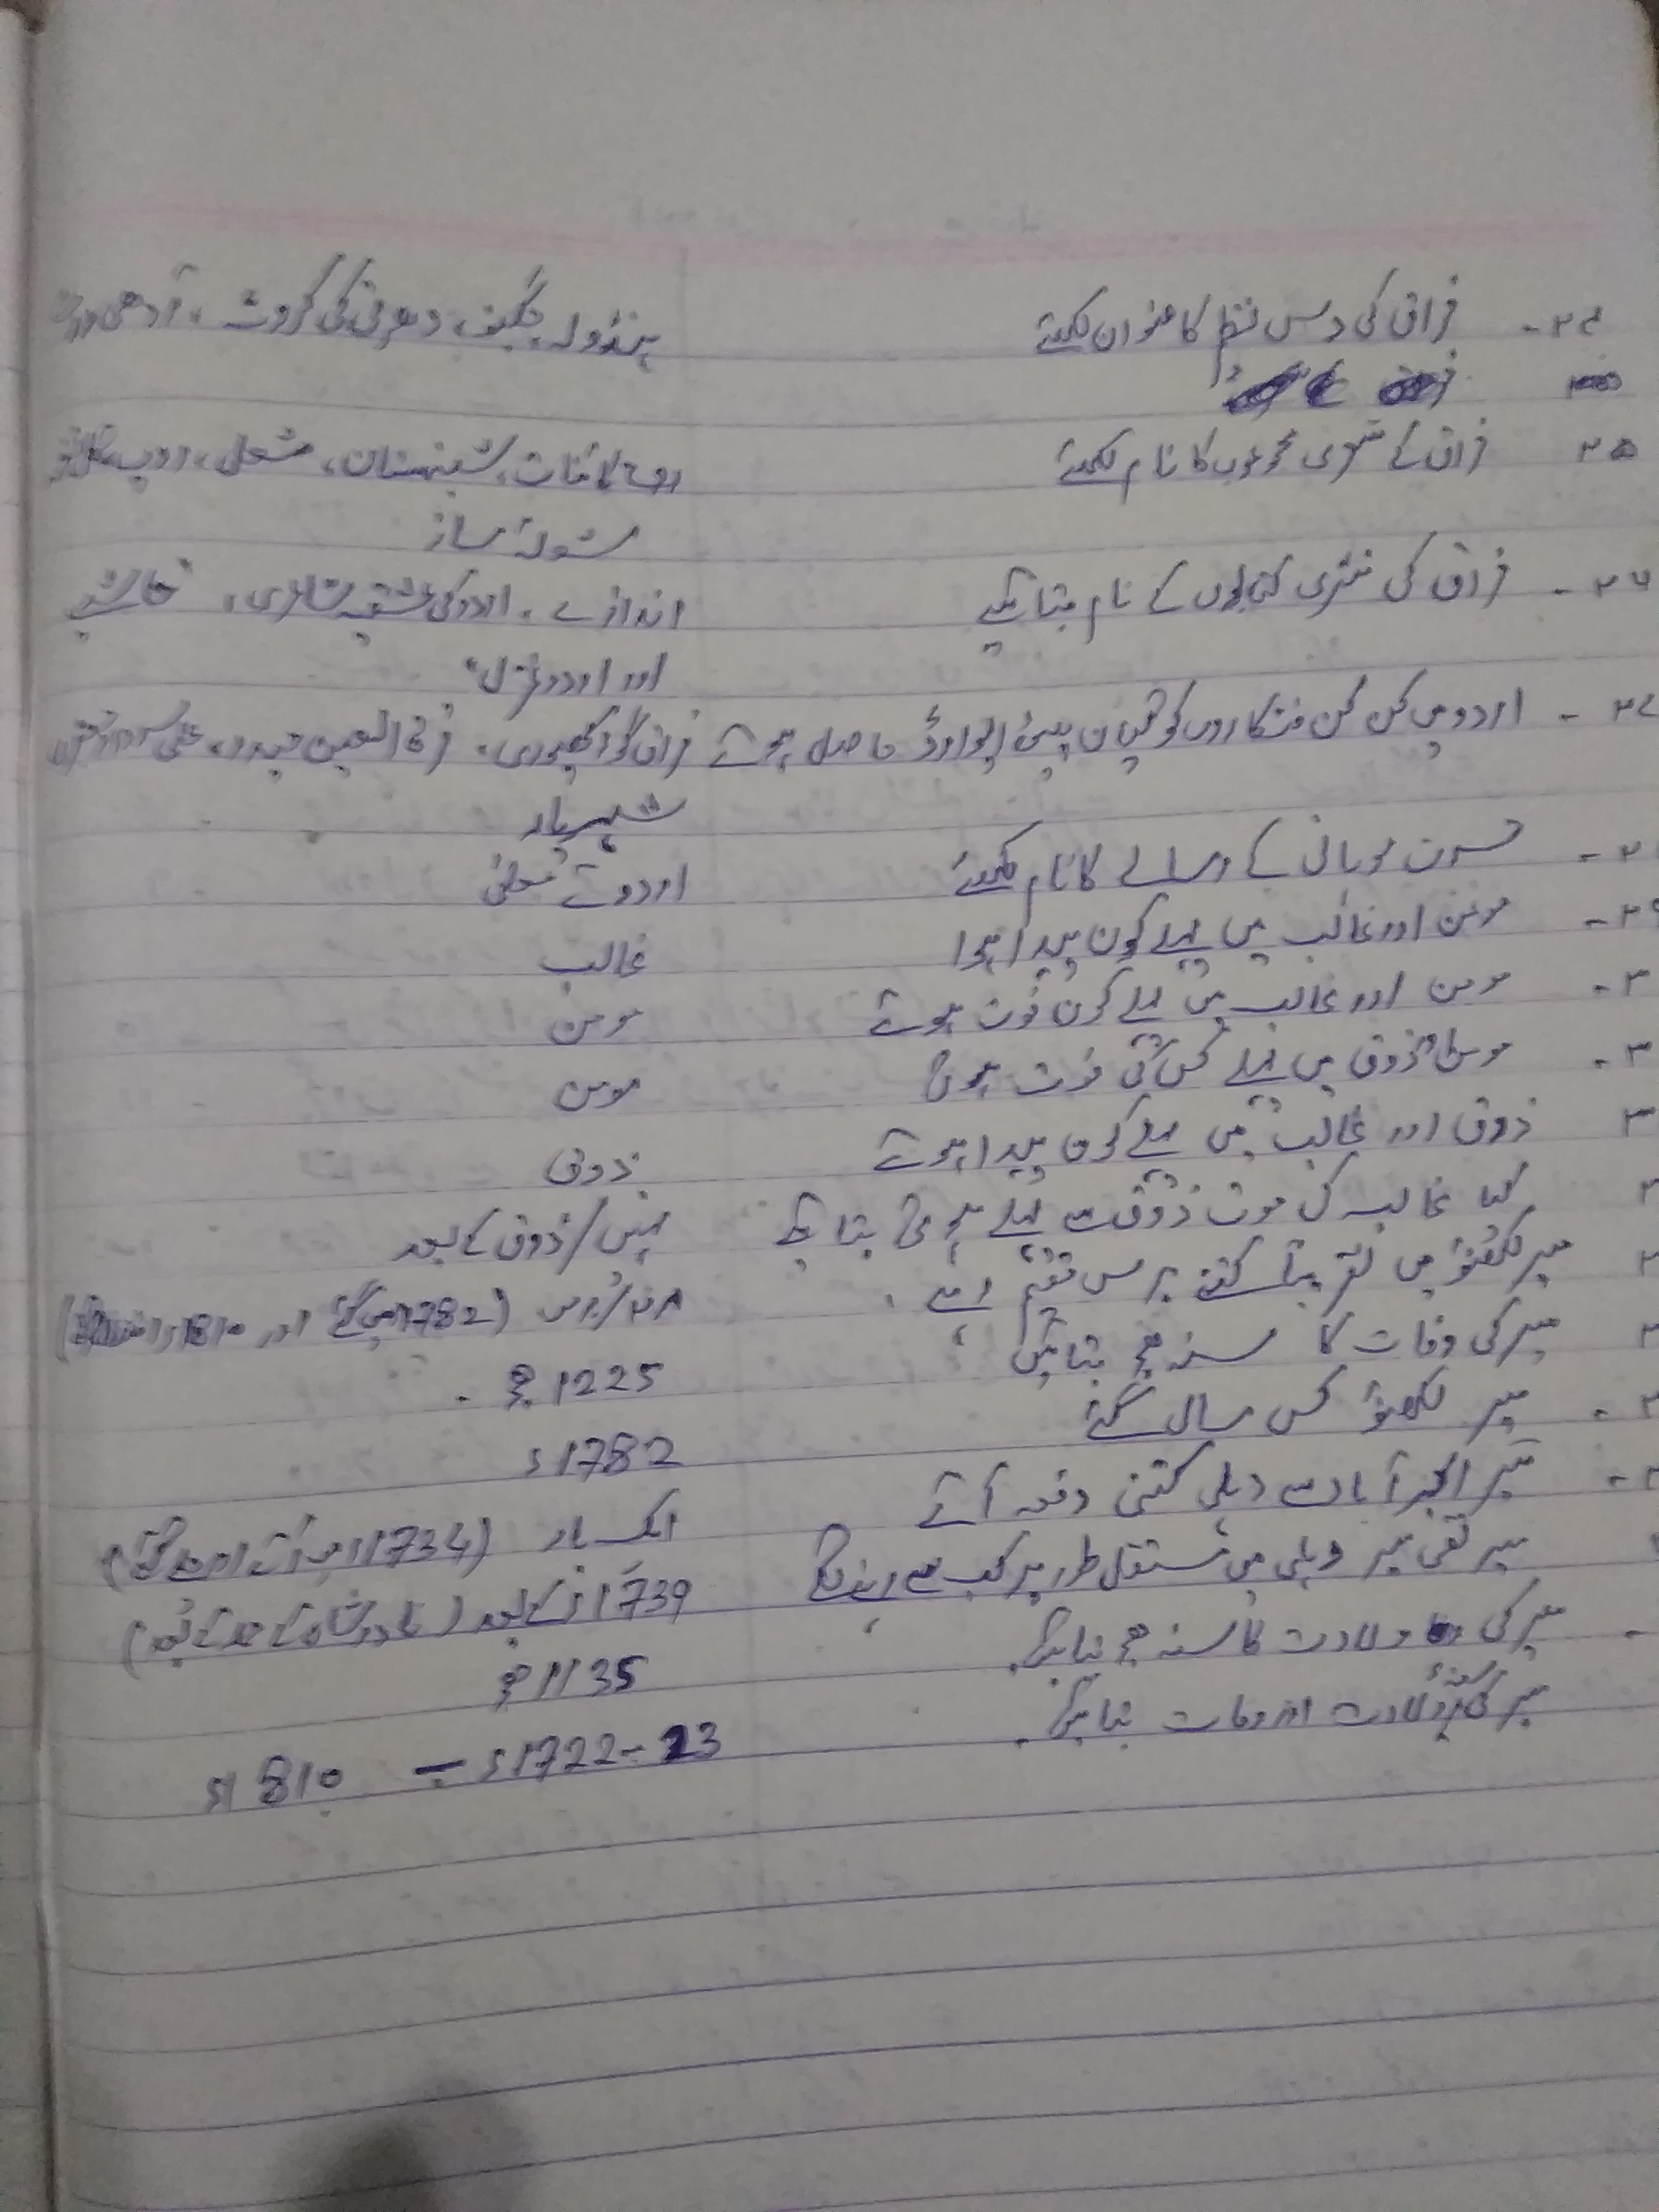 ۲۴۔ فراق کی دس نظم کا عنوان لکھئے ہنڈولہ، جگنو، دھرتی کی کروٹ، آدھی رات
۲۵ فراق کے شعری مجموعوں کا نام لکھئے روح کائنات، شبنمستان، مشعل، روپ،
شعلۂ ساز
۲۶۔ فراق کی نثری کتابوں کے نام بتائیے اندازے، اردو کی عشقیہ شاعری، حاشیے
اور اردو غزل
۲۷۔ اردو میں کن کن فنکاروں کو گیان پیٹھ ایوارڈ حاصل ہوئے فراق گورکھپوری، قرۃ العین حیدر، علی سردار جعفری
شہریار
حسرت موہانی کے رسالے کا نام لکھئے اردوئے معلیٰ
۲۹۔ مومن اور غالب میں پہلے کون پیدا ہوا غالب
۳۔ مومن اور غالب میں پہلے کون فوت ہوئے مومن
۳۔ ذوق میں پہلے کس کی فوت ہوئی مومن
۳ ذوق اور غالب میں پہلے کون پیدا ہوئے ذوق
۳ کیا غالب کی موت ذوق سے پہلے ہوئی بتائیے نہیں/ذوق کے بعد
۳ میر لکھنؤ میں تقریباً کتنے برس مقیم رہے برس (1782 میں گئے اور 1810ء
۳ میر کی وفات کا سنہ ھج بتائیں 1225 ھج
۳۔ میر لکھنؤ کس سال گئے 1782ء
۳۔ میر اکبر آباد سے دہلی کتنی دفعہ آئے ایک بار (1734 میں آئے
میر تقی میر دہلی میں مستقل طور پر کب سے رہنے لگے 1739ء کے بعد (نادر شاہ کے حملہ کے بعد)
میر کی ولادت کا سنہ ھج بتائیں 1135 ھج
میر کی ولادت اور وفات بتائیں 1722-23ء — 1810ء